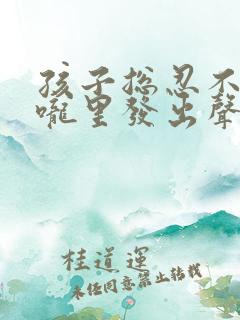 孩子总忍不
嚨里發出聲
桂道運
未经同意禁止转载